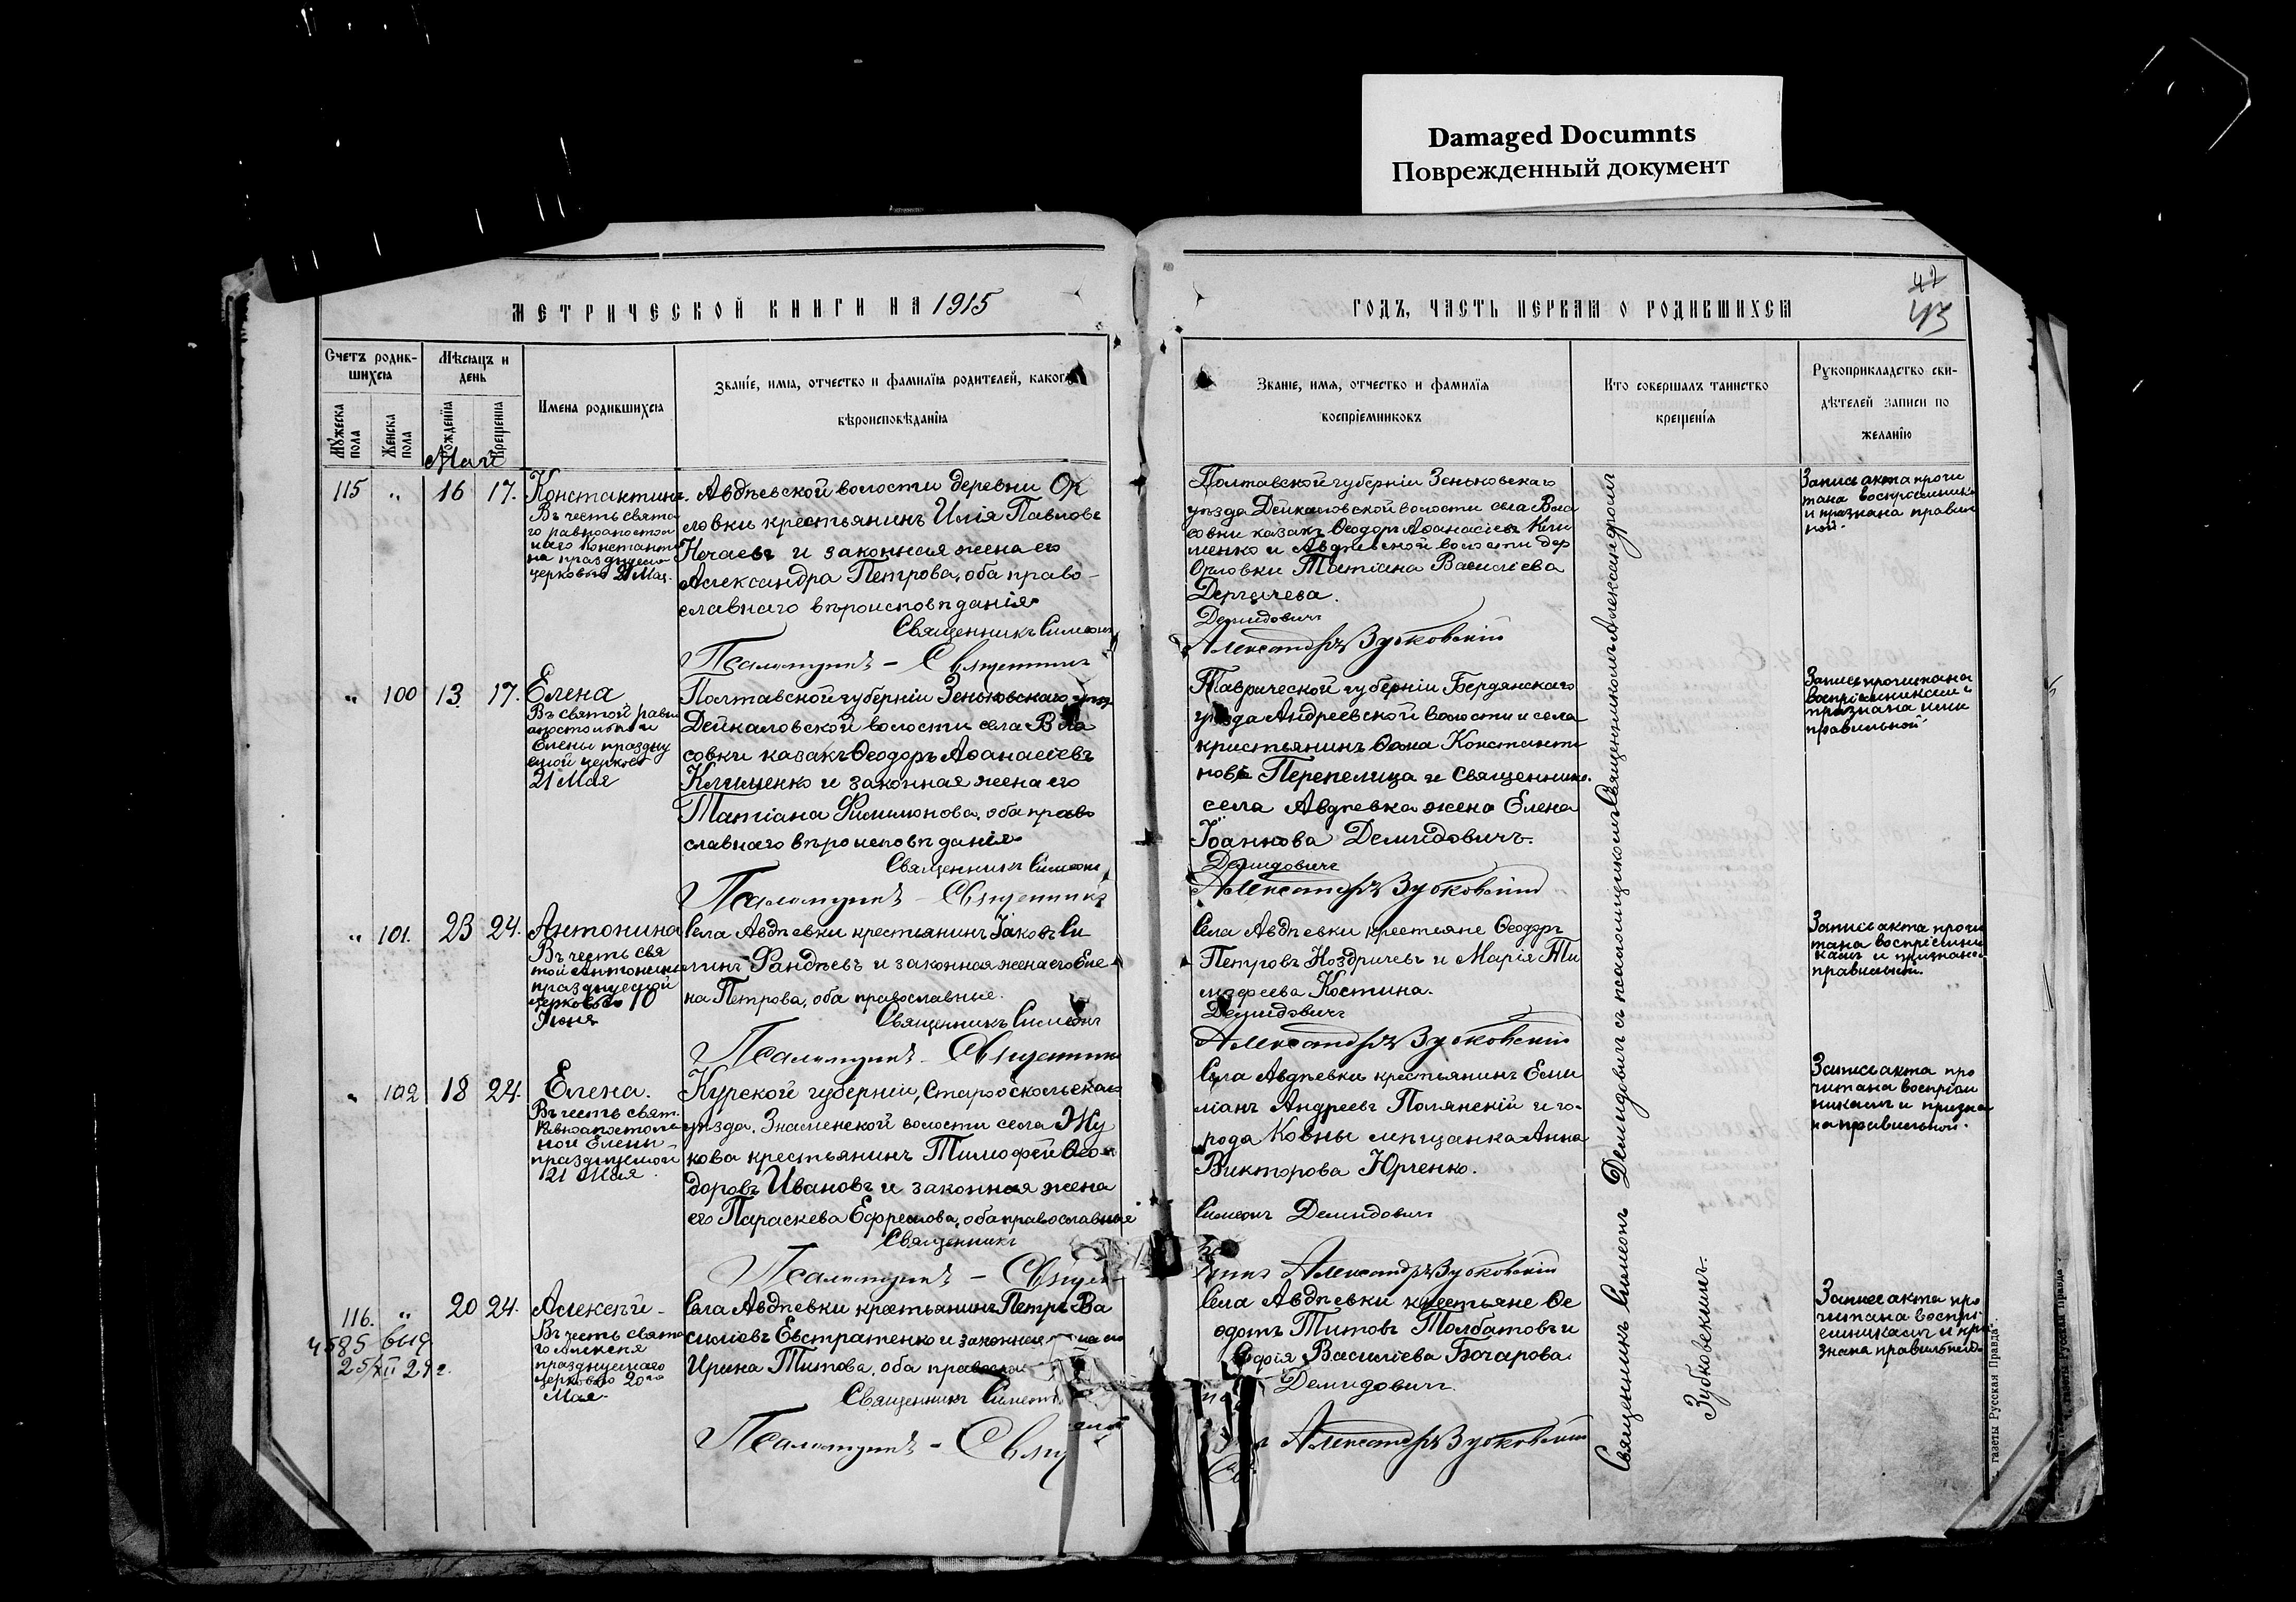 Damaged Documnts
Поврежденный документ
МЕТРИЧЕСКОЙ КНИГИ НА 1915
ГОДЪ, ЧАСТЬ ПЕРВАЯ О РОДИВШИХСЯ
42
43
Счетъ родив-
шихся
Мѣсяцъ и
день
Мужеска пола
Женска пола
Рожденія
Крещенія
Имена родившихся
Званіе, имя, отчество и фамилія родителей, какого
вѣроисповѣданія
Званіе, имя, отчество и фамилія
воспріемниковъ
Кто совершалъ таинство
крещенія
Рукоприкладство сви-
дѣтелей записи по
желанію
Май
115 " 16 17.
Константинъ.
Въ честь свята
го равноапостоль
наго Константи
на празднуемо
церковью 21 Мая.
Авдѣевской волости деревни Ор
ловки крестьянинъ Илія Павловъ
Нечаевъ и законная жена его
Александра Петрова, оба право-
славнаго вѣроисповѣданія
Священникъ Симеонъ
Псаломщикъ - Священникъ
Полтавской губерніи Зеньковскаго
уѣзда Дейкаловской волости села Вла
совки казакъ Ѳеодоръ Аѳанасіевъ Кли
менко и Авдѣевской волости дер
Орловки Татіана Василіева
Дергачева.
Демидовичъ
Александръ Зубковскій
Запись акта прочи
тана воспріемника
и признана правиль
ной.
" 100 13 17.
Елена
Въ святой равно
апостольной
Елены праздну
емой церковью
21 Мая
Полтавской губерніи Зеньковскаго уѣзд
Дейкаловской волости села Вла
совки казакъ Ѳеодоръ Аѳанасіевъ
Клименко и законная жена его
Татіана Филимонова, оба право
славнаго вѣроисповѣданія
Священникъ Симеонъ
Псаломщикъ - Священникъ
Таврической губерніи Бердянскаго
уѣзда Андреевской волости и села
крестьянинъ Ѳома Константи
новъ Перепелица и священника
села Авдѣевка жена Елена
Іоаннова Демидовичъ.
Демидовичъ
Александръ Зубковскій
Запись прочитана
воспріемниками и
признана ими
правильной
" 101. 23 24.
Антонина
Въ честь свя
той Антонины
празднуемой
церковью 10
Іюня
Села Авдѣевки крестьянинъ Іаковъ Си
минъ Фандѣевъ и законная жена его Еле-
на Петрова, оба православные.
Священникъ Симеонъ
Псаломщикъ - Священникъ
Села Авдѣевки крестьяне Ѳеодоръ
Петровъ Ноздричевъ и Марія Ти
моѳеева Костина.
Демидовичъ
Александръ Зубковскій
Запись акта прочи
тана воспріемни
камъ и признана
правильной.
" 102 18 24.
Елена.
Въ честь свят.
Равноапостоль
ной Елены
празднуемой
21 Мая
Курской губерніи, Старооскольскаго
уѣзда, Знаменской волости села Жу
кова крестьянинъ Тимоѳей Ѳео-
доровъ Ивановъ и законная жена
его Параскева Ефремова, оба православные
Священникъ
Псаломщикъ - Священ
Села Авдѣевки крестьянинъ Еми
ліанъ Андреевъ Полянскій и го-
рода Ковны мѣщанка Анна
Викторова Юрченко.
Симеонъ Демидовичъ
Александръ Зубковскій
Запись акта про
читана воспріем
никамъ и призна
на правильной.
116. " 20 24.
4585 выд
25/XII 29 г.
Алексѣй -
Въ честь свята
го Алексѣя
празднуемаго
церковью 20го
Мая.
Села Авдѣевки крестьянинъ Петръ Ва
силіевъ Евстратенко и законная жена его
Ирина Титова, оба православ
Священникъ Симеонъ
Псаломщикъ - Свящ
Села Авдѣевки крестьяне Ѳе
одотъ Титовъ Толбатовъ и
Софія Василіева Бочарова.
Демидовичъ.
Александръ Зубковскій
Запись акта про
читана воспрі
емникамъ и при
знана правильной.
Священникъ Симеонъ Демидовичъ съ псаломщикомъ Священникомъ Александромъ
Зубковскимъ.
газеты Русская Правда".